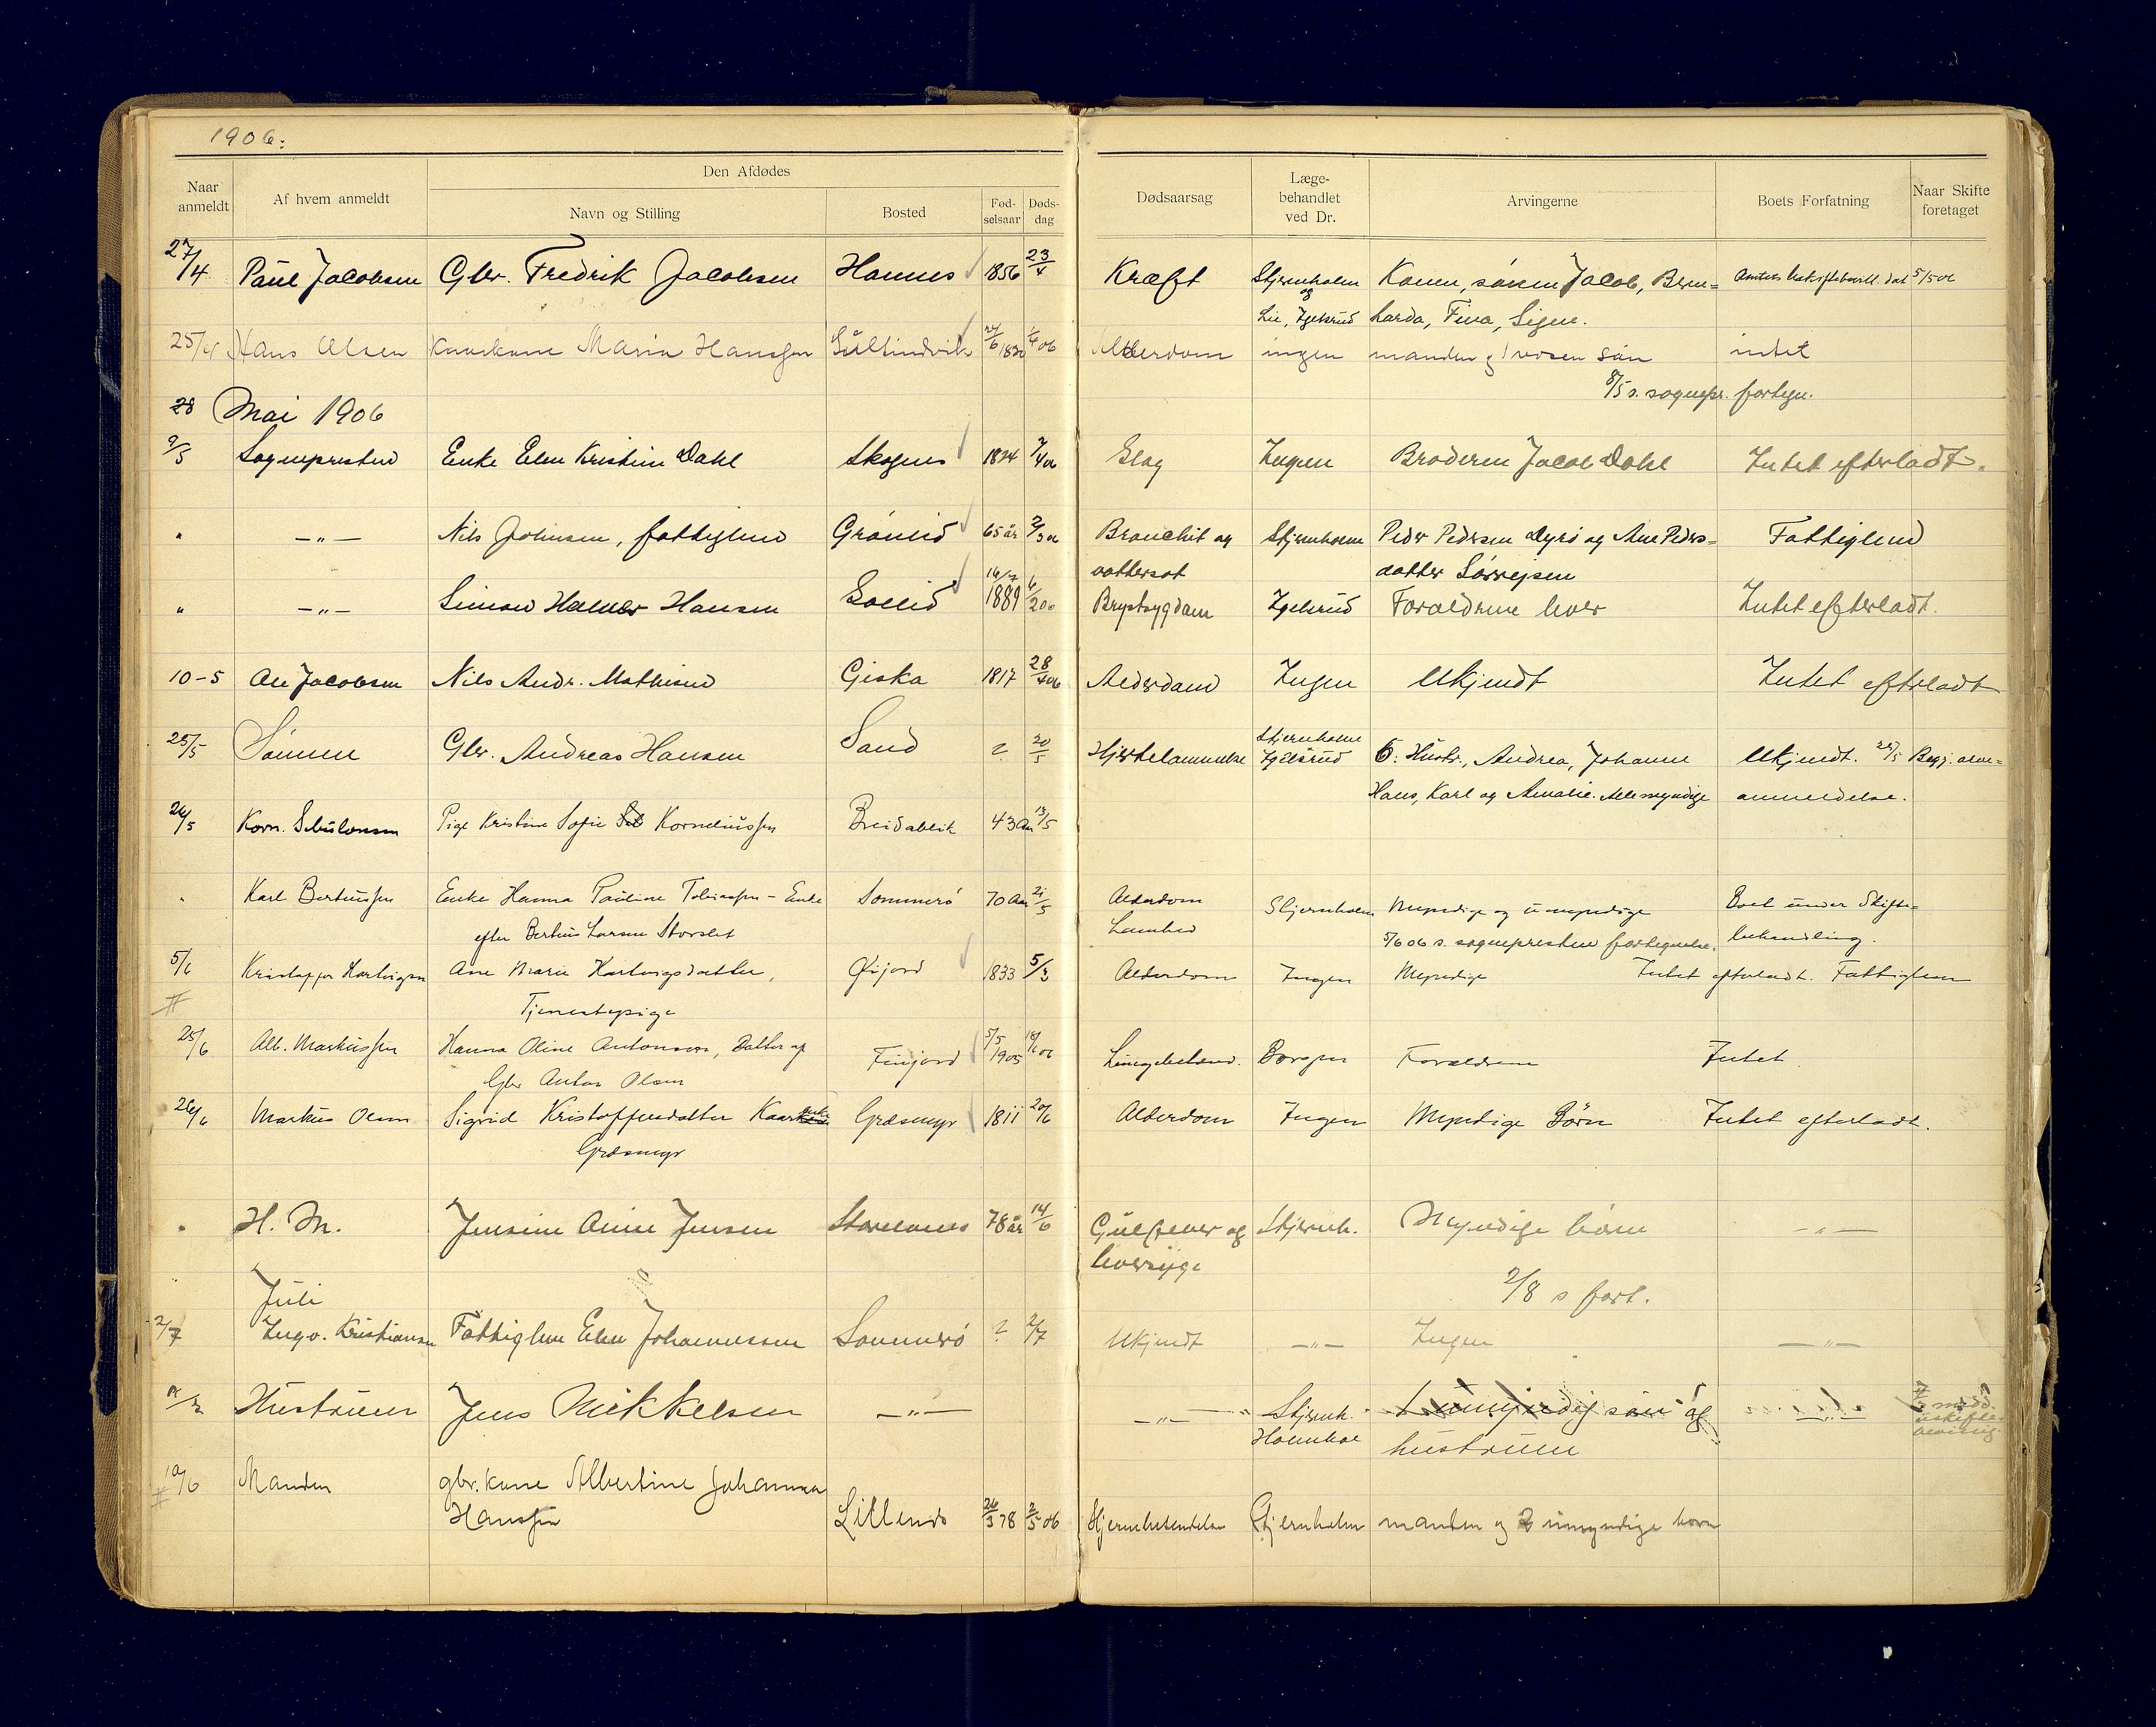 1906:
Naar anmeldt
Af hvem anmeldt
Den Afdødes
Navn og Stilling
Bosted
Fød-selsaar
Døds-dag
Dødsaarsag
Læge-behandlet ved Dr.
Arvingerne
Boets Forfatning
Naar Skifte foretaget
27/4 Paul Jacobsen Gbr. Fredrik Jacobsen Hannes 1856 23/4 Kræft Stjernholm Konen, sønnen Jacob, Bern= 5/5 06
og
Lie, Egelsrud harda, Fina, Signe.
25/4 Hans Olsen Kaarkone Maria Hanssen Sultindvik 1/4 06 Alderdom ingen manden og 1 voxen søn intet
8/5 s. sognepr. fortegn.
28 Mai 1906
9/5 Sognepresten Enke Elen Kristine Dahl Skognes 1824 7/4 06 Slag Ingen Broderen Jacob Dahl Intet efterladt.
" —"— Nils Johnsen, fattiglem Grønlid 65 år 2/3 06 Bronchit og Stjernholm Peder Pedersen Dyrø og Ane Peders= Fattiglem
vattersot datter Sørreisen
" —"— Simon Halmer Hansen Solli 16/7 1889 6/2 06 Brystsygdom Egelsrud Forældrene lever Intet efterladt.
10-5 Ole Jacobsen Nils Andr. Mathisen Giska 1817 28/4 06 Alderdom Ingen Ukjendt Intet efterladt
25/5 Sønnen Gbr. Andreas Hansen Sand ? 20/5 Hjertelammelse Stjernholm
Egelsrud 6: Hustr., Andrea, Johanne Ukjendt. 25/5 Begj.
Hans, Karl og Amalie. Alle myndige anmeldelse.
26/5 Korn. Sebulonsen Pige Kristine Sofie Korneliussen Breidablik 43 Aar 13/5
" Karl Bertiussen Enke Hanna Pauline Tobiassen - Enke Sommerø 70 Aar 21/5 Alderdom Stjernholm Myndige og umyndige Boet under Skifte=
efter Bertius Larsen Storslet 5/6 06 s. sognepresten fortegnelse. behandling.
5/6 Kristoffer Hartvigsen Ane Marie Hartvigsdatter, Øijord 1833 5/3 Alderdom Ingen Myndige Intet efterladt. Fattiglem
Tjenestepige
25/6 Alb. Markussen Hanna Oline Antonsen, Datter af Finjord 5/5 1905 18/6 06 Lungebetænd. Borgen Forældrene Intet
Gbr Anton Olsen
26/6 Markus Olsen Sigrid Kristoffersdatter Kaarenke Græsmyr 1811 20/6 Alderdom Ingen Myndige Børn Intet efterladt.
Græsmyr
" H. M. Jensine Anne Jensen 78 år 14/6 Stjernh. Myndige børn —"—
leversyge
2/8 s fort.
Juli
2/7 Ingv. Kristiansen Fattiglem Elen Johannessen Sommerø ? 2/7 Ukjendt —"— Ingen —"—
Hustruen Jens Mikkelsen —"— —"— Stjernh. 1 umyndig søn og
hustruen
10/6 Manden gbr. kone Albertine Johanna
Hanssen Lillenes 26/3 78 2/5 06 Hjernebetendelse Stjernholm manden og 2 umyndige børn